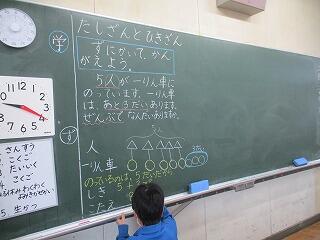 たしざんとひきざん
学
ずにかいて、かん
がえよう。
5人が一りん車に
のっています。一りん車
は、あと3だいあります。
ぜんぶでなんだいありますか。
ず
5人
人
3だい
一りん車
のっているのは、5だいだから
しき 5+
こたえ
さんすう
こくご
たいいく